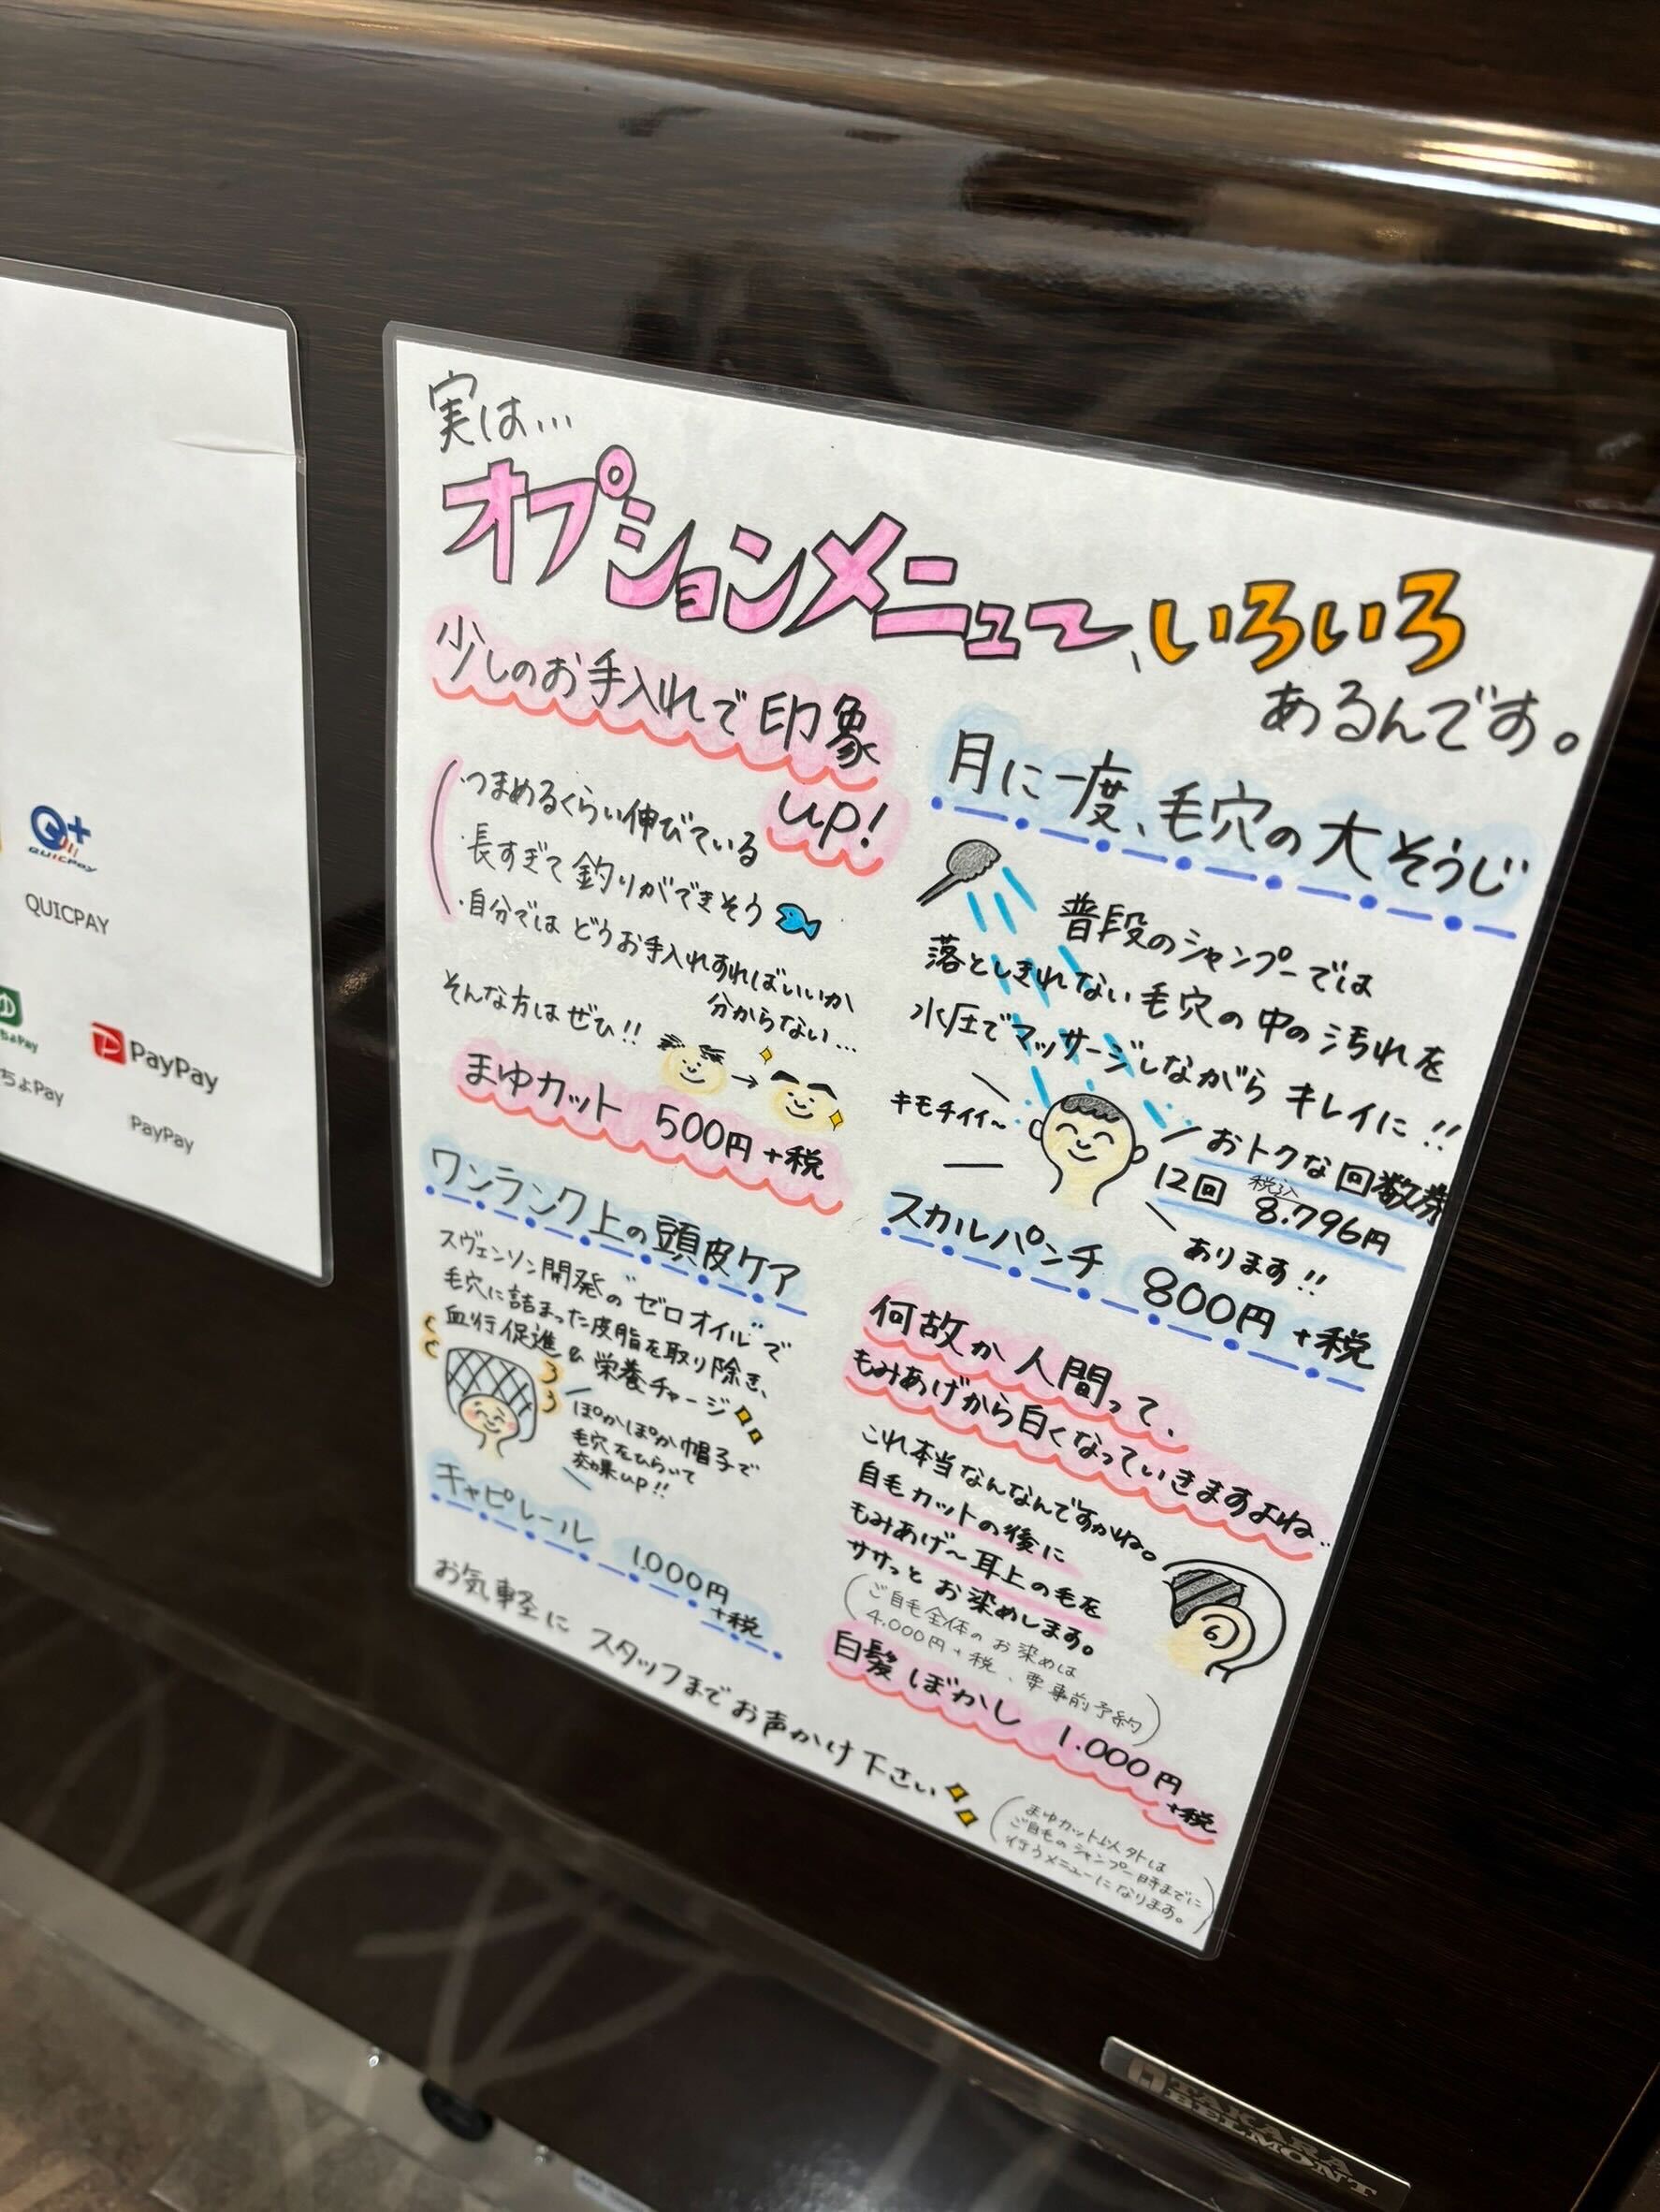 実は…
オプションメニュー、いろいろ
あるんです。
少しのお手入れで印象
up!
・つまめるくらい伸びている
・長すぎて釣りができそう
・自分ではどうお手入れすればいいか
分からない…
そんな方はぜひ!!
まゆカット 500円+税
月に一度、毛穴の大そうじ
普段のシャンプーでは
落としきれない毛穴の中の汚れを
水圧でマッサージしながらキレイに!!
キモチイイ〜
おトクな回数券
12回 税込 8.796円
あります!!
スカルパンチ 800円+税
ワンランク上の頭皮ケア
スヴェンソン開発の"ゼロオイル"で
毛穴に詰まった皮脂を取り除き、
血行促進&栄養チャージ
ぽかぽか帽子で
毛穴をひらいて
効果up!!
キャピレール 1.000円
+税
何故か人間って、
もみあげから白くなっていきますよね…
これ本当なんなんですかね。
自毛カットの後に
もみあげ〜耳上の毛を
ササっとお染めします。
(ご自毛全体のお染めは
4.000円+税、要事前予約)
白髪ぼかし 1.000円
+税
お気軽にスタッフまでお声かけ下さい
(まゆカット以外は
ご自毛のシャンプー時までに
行うメニューになります。)
QUICPay
QUICPAY
ちょPay
ちょPay
PayPay
PayPay
TAKARA
BELMONT